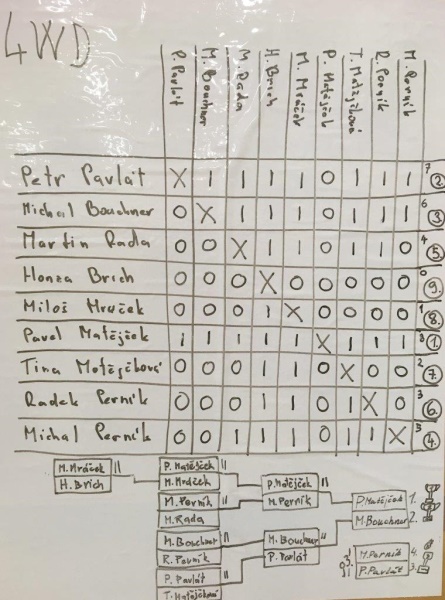 4WD
P. Pavlát M. Bouchner M. Rada H. Brich M. Mráček P. Matějček T. Matějčková R. Perník M. Perník
Petr Pavlát X 1 1 1 1 0 1 1 1 7 2
Michal Bouchner 0 X 1 1 1 0 1 1 1 6 3
Martin Rada 0 0 X 1 1 0 1 1 0 4 5.
Honza Brich 0 0 0 X 0 0 0 0 0 0 9.
Miloš Mráček 0 0 0 1 X 0 0 0 0 1 8.
Pavel Matějček 1 1 1 1 1 X 1 1 1 8 1
Tina Matějčková 0 0 0 1 1 0 X 0 0 2 7
Radek Perník 0 0 0 1 1 0 1 X 0 3 6
Michal Perník 0 0 1 1 1 0 1 1 X 5 4
M. Mráček 11
H. Brich
P. Matějček 11
M. Mráček
M. Perník 11
M. Rada
M. Bouchner 11
R. Perník
P. Pavlát 11
T. Matějčková
P. Matějček 11
M. Perník
M. Bouchner 11
P. Pavlát
P. Matějček 1.
M. Bouchner 2.
M. Perník 4.
P. Pavlát 3.